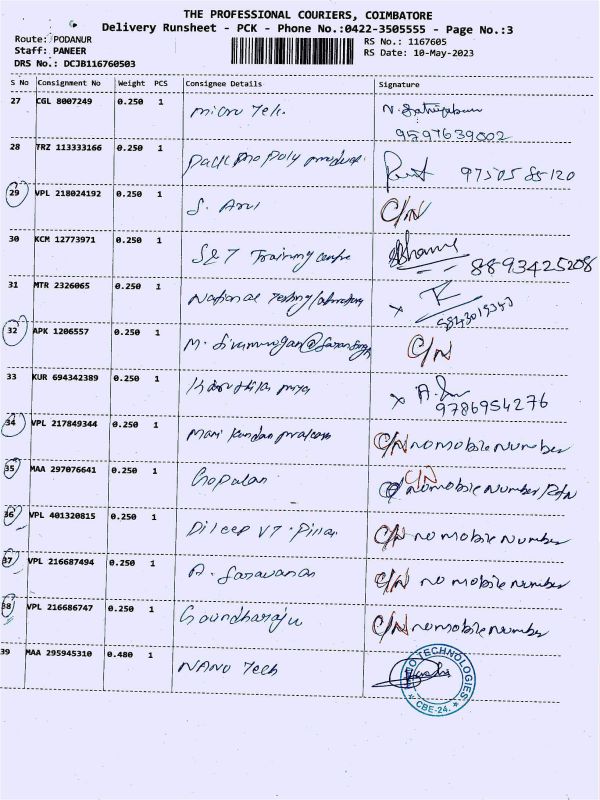 THE PROFESSIONAL COURIERS, COIMBATORE
Delivery Runsheet - PCK - Phone No.:0422-3505555 - Page No.:3
Route: PODANUR
Staff: PANEER
DRS No.: DCJB116760503
RS No.: 1167605
RS Date: 10-May-2023
S No Consignment No Weight PCS Consignee Details Signature
27 CGL 8007249 0.250 1 Micro Tek.
9597639002
28 TRZ 113333166 0.250 1 Pack Pro Poly
97505 85120
29 VPL 218024192 0.250 1 S. Arul C/N
30 KCM 12773971 0.250 1 S&T Training centre
8893425208
31 MTR 2326065 0.250 1 National Testing laboratory x
32 APK 1206557 0.250 1 M. Sivamurugan@ C/N
33 KUR 694342389 0.250 1 x
9786954276
34 VPL 217849344 0.250 1 C/N no mobile number
35 MAA 297076641 0.250 1 Gopalan C/N no mobile number
36 VPL 401320815 0.250 1 Dileep VT. Pillai C/N no mobile number
37 VPL 216687494 0.250 1 A. Saravanan C/N no mobile number
38 VPL 216686747 0.250 1 Soundharaju C/N no mobile number
39 MAA 295945310 0.480 1 NANO Tech
TECHNOLOGIES
CBE-24.